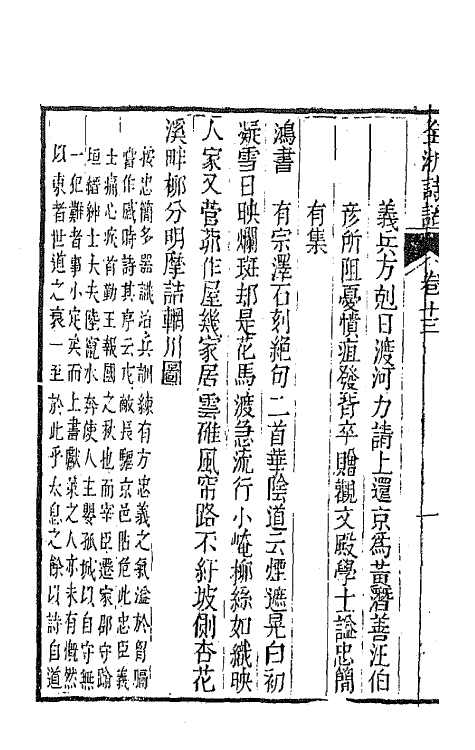 全浙詩話 卷十三 一
義兵方剋日渡河力請上還京爲黃潛善汪伯
彥所阻憂憤疽發背卒贈觀文殿學士諡忠簡
有集
鴻書 有宗澤石刻絕句二首華陰道云煙遮晃白初
疑雪日映斕斑却是花馬渡急流行小崦柳絲如織映
人家又菅茆作屋幾家居雲碓風帘路不紆坡側杏花
溪畔柳分明摩詰輞川圖
按忠簡多器識治兵訓練有方忠義之氣溢於眉睫
嘗作感時詩其序云戎敵長驅京邑阽危此忠臣義
士痛心疾首勤王報國之秋也而宰臣遷家郎守踰
垣縉紳士大夫陸竄水奔使人主嬰孤城以自守無
一犯難者事小定矣而上書獻策之人亦未有慨然
以東者世道之衰一至於此乎太息之餘以詩自道